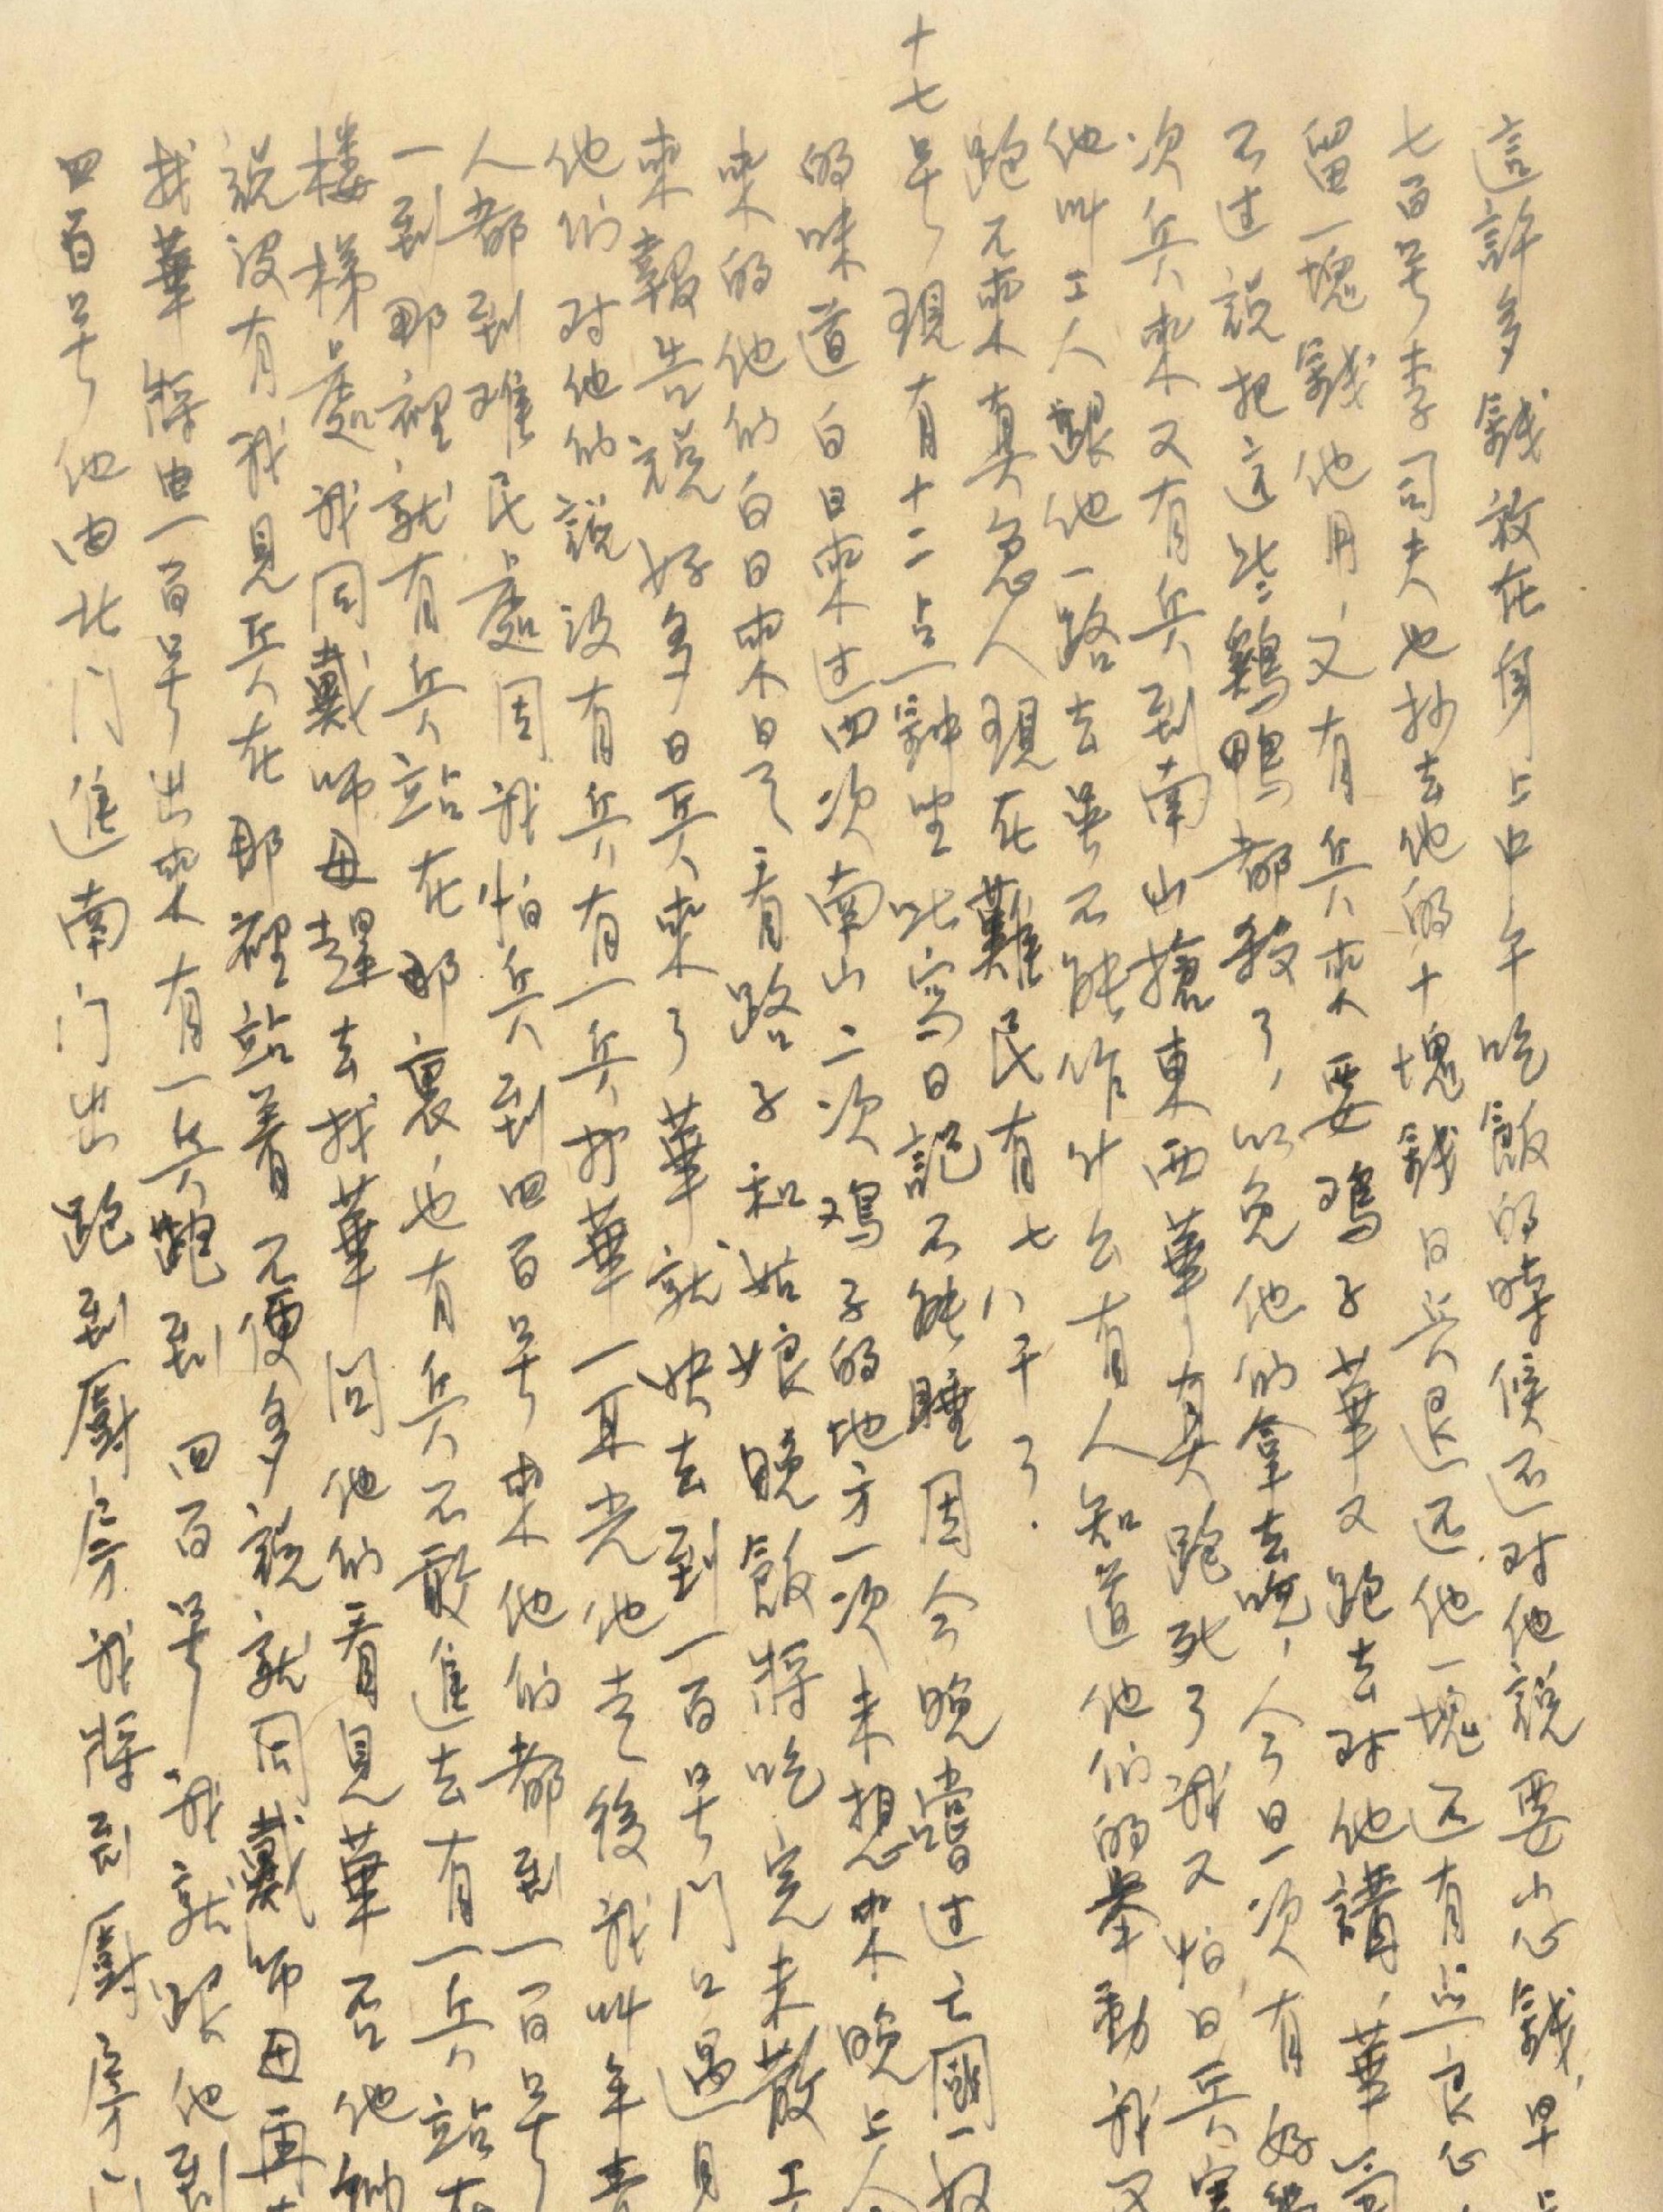 這許多錢放在身上中午吃飯的時候还对他說要小心錢,早
七百号李司夫也抄去他的十塊錢日兵退还他一塊还有点良心
留一塊錢他用,又有兵來要鸡子華又跑去对他講,華
不过說把这些鷄鴨都殺了,以免他们拿去吃,人今日一次有好幾
次兵來又有兵到南山搶東西華真跑死了我又怕日兵害
他叫工人跟他一路去要不能作什么有人知道他们的舉動我又
跑不來真急人現在難民有七八千了.
十七号,現有十二点鐘坐此寫日記不能睡因今晚嚐过亡國奴
的味道白日來过四次南山二次鸡子的地方一次未想來晚上
來的他们白日來是看路子和姑娘晚飯將吃完未散工
來報告說好多日兵來了華就快去到一百号門口遇見
他们对他们說没有兵有一兵打華一耳光他走後我叫年青
人都到难民處因我怕兵到四百号來他们都到一百号
一到那裡就有兵站在那裏,也有兵不敢進去有一兵站在
楼梯處我同戴师母趕去找華問他们看見華否他们
說没有我見兵在那裡站着不便多說就同戴师母再
找華將由一百号出來有一兵跑到四百号,我就跟他到
四百号他由北门進南门出跑到廚房我将到廚房门